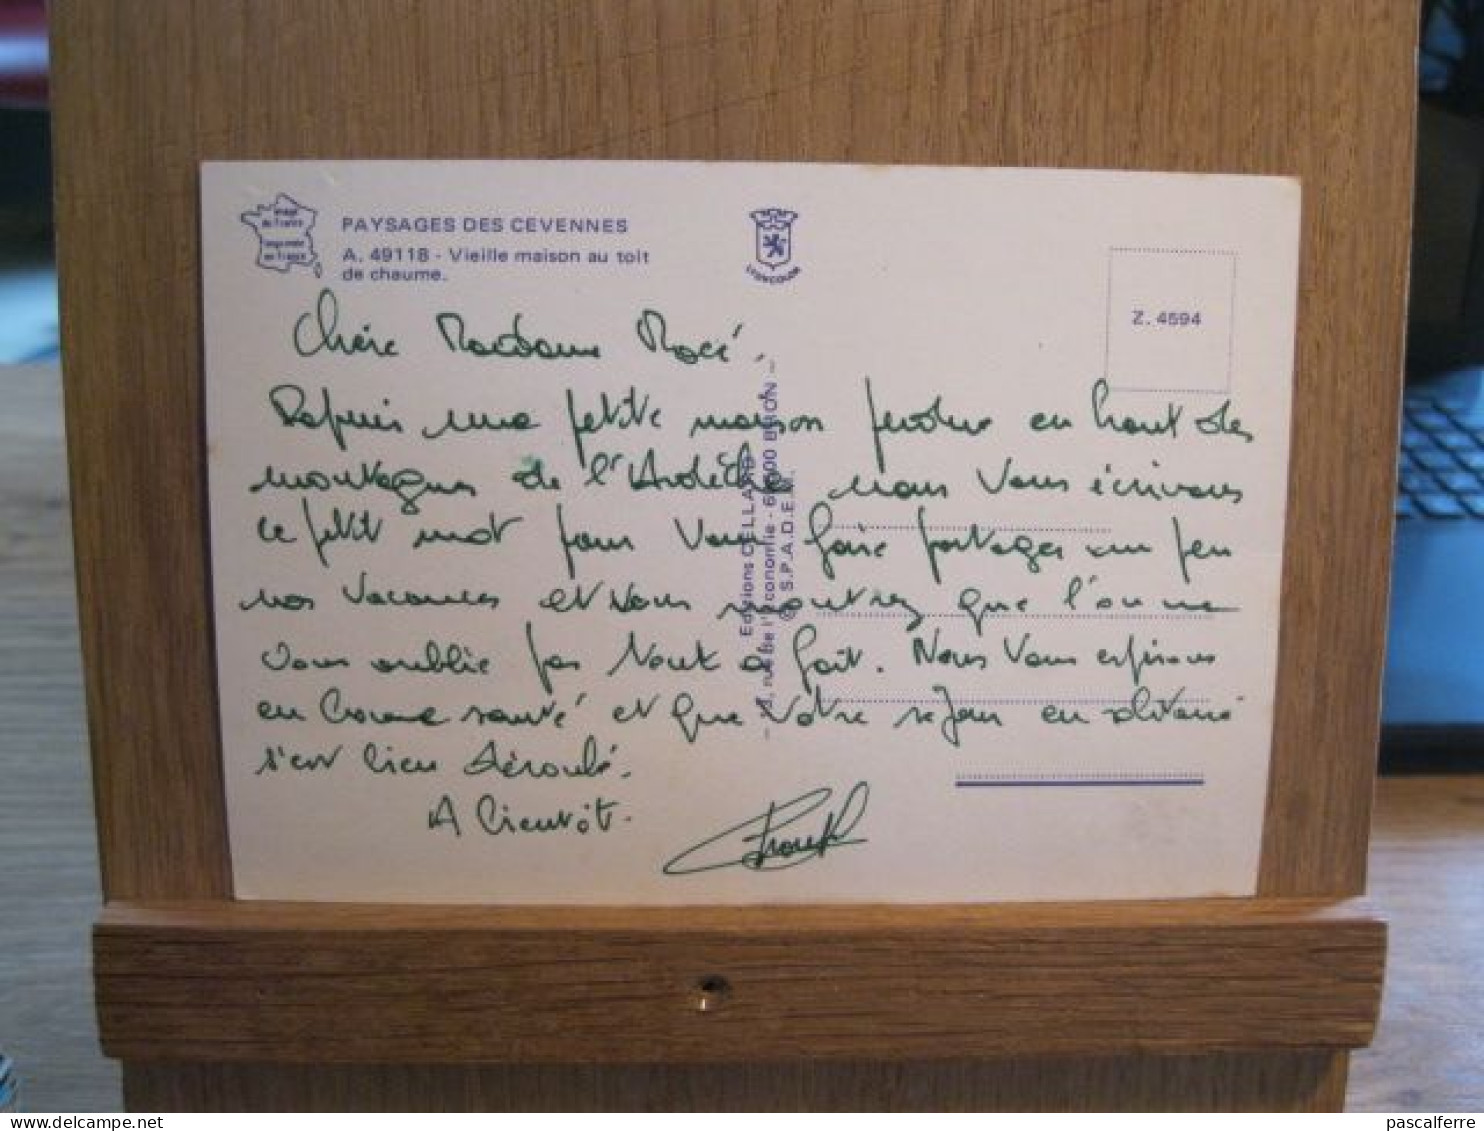 Image
de France
imprimée
en France
PAYSAGES DES CEVENNES
A. 49118 - Vieille maison au toit
de chaume.
LYONCOLOR
Z. 4594
Chère Madame Macé,
Depuis une petite maison perdue en haut des
montagnes de l'Ardèche nous vous écrivons
ce petit mot pour vous faire partager un peu
nos vacances et vous montrez que l'on ne
vous oublie pas tout à fait. Nous vous espérons
en bonne santé et que votre séjour en
s'est bien déroulé.
A bientôt.
Editions CELLARD
rue de l'Economie - 69500 BRON -
© S.P.A.D.E.M.
pascalferre